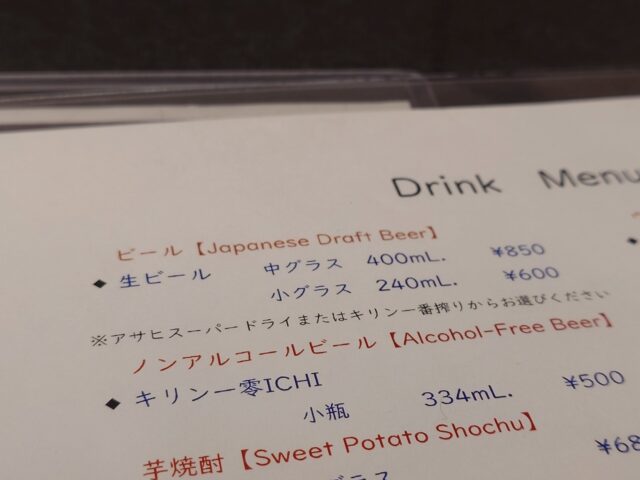 Drink Menu
ビール【Japanese Draft Beer】
◆ 生ビール 中グラス 400mL. ¥850
小グラス 240mL. ¥600
※アサヒスーパードライまたはキリン一番搾りからお選びください
ノンアルコールビール【Alcohol-Free Beer】
◆ キリン一零ICHI
小瓶 334mL. ¥500
芋焼酎【Sweet Potato Shochu】
¥68
グラス